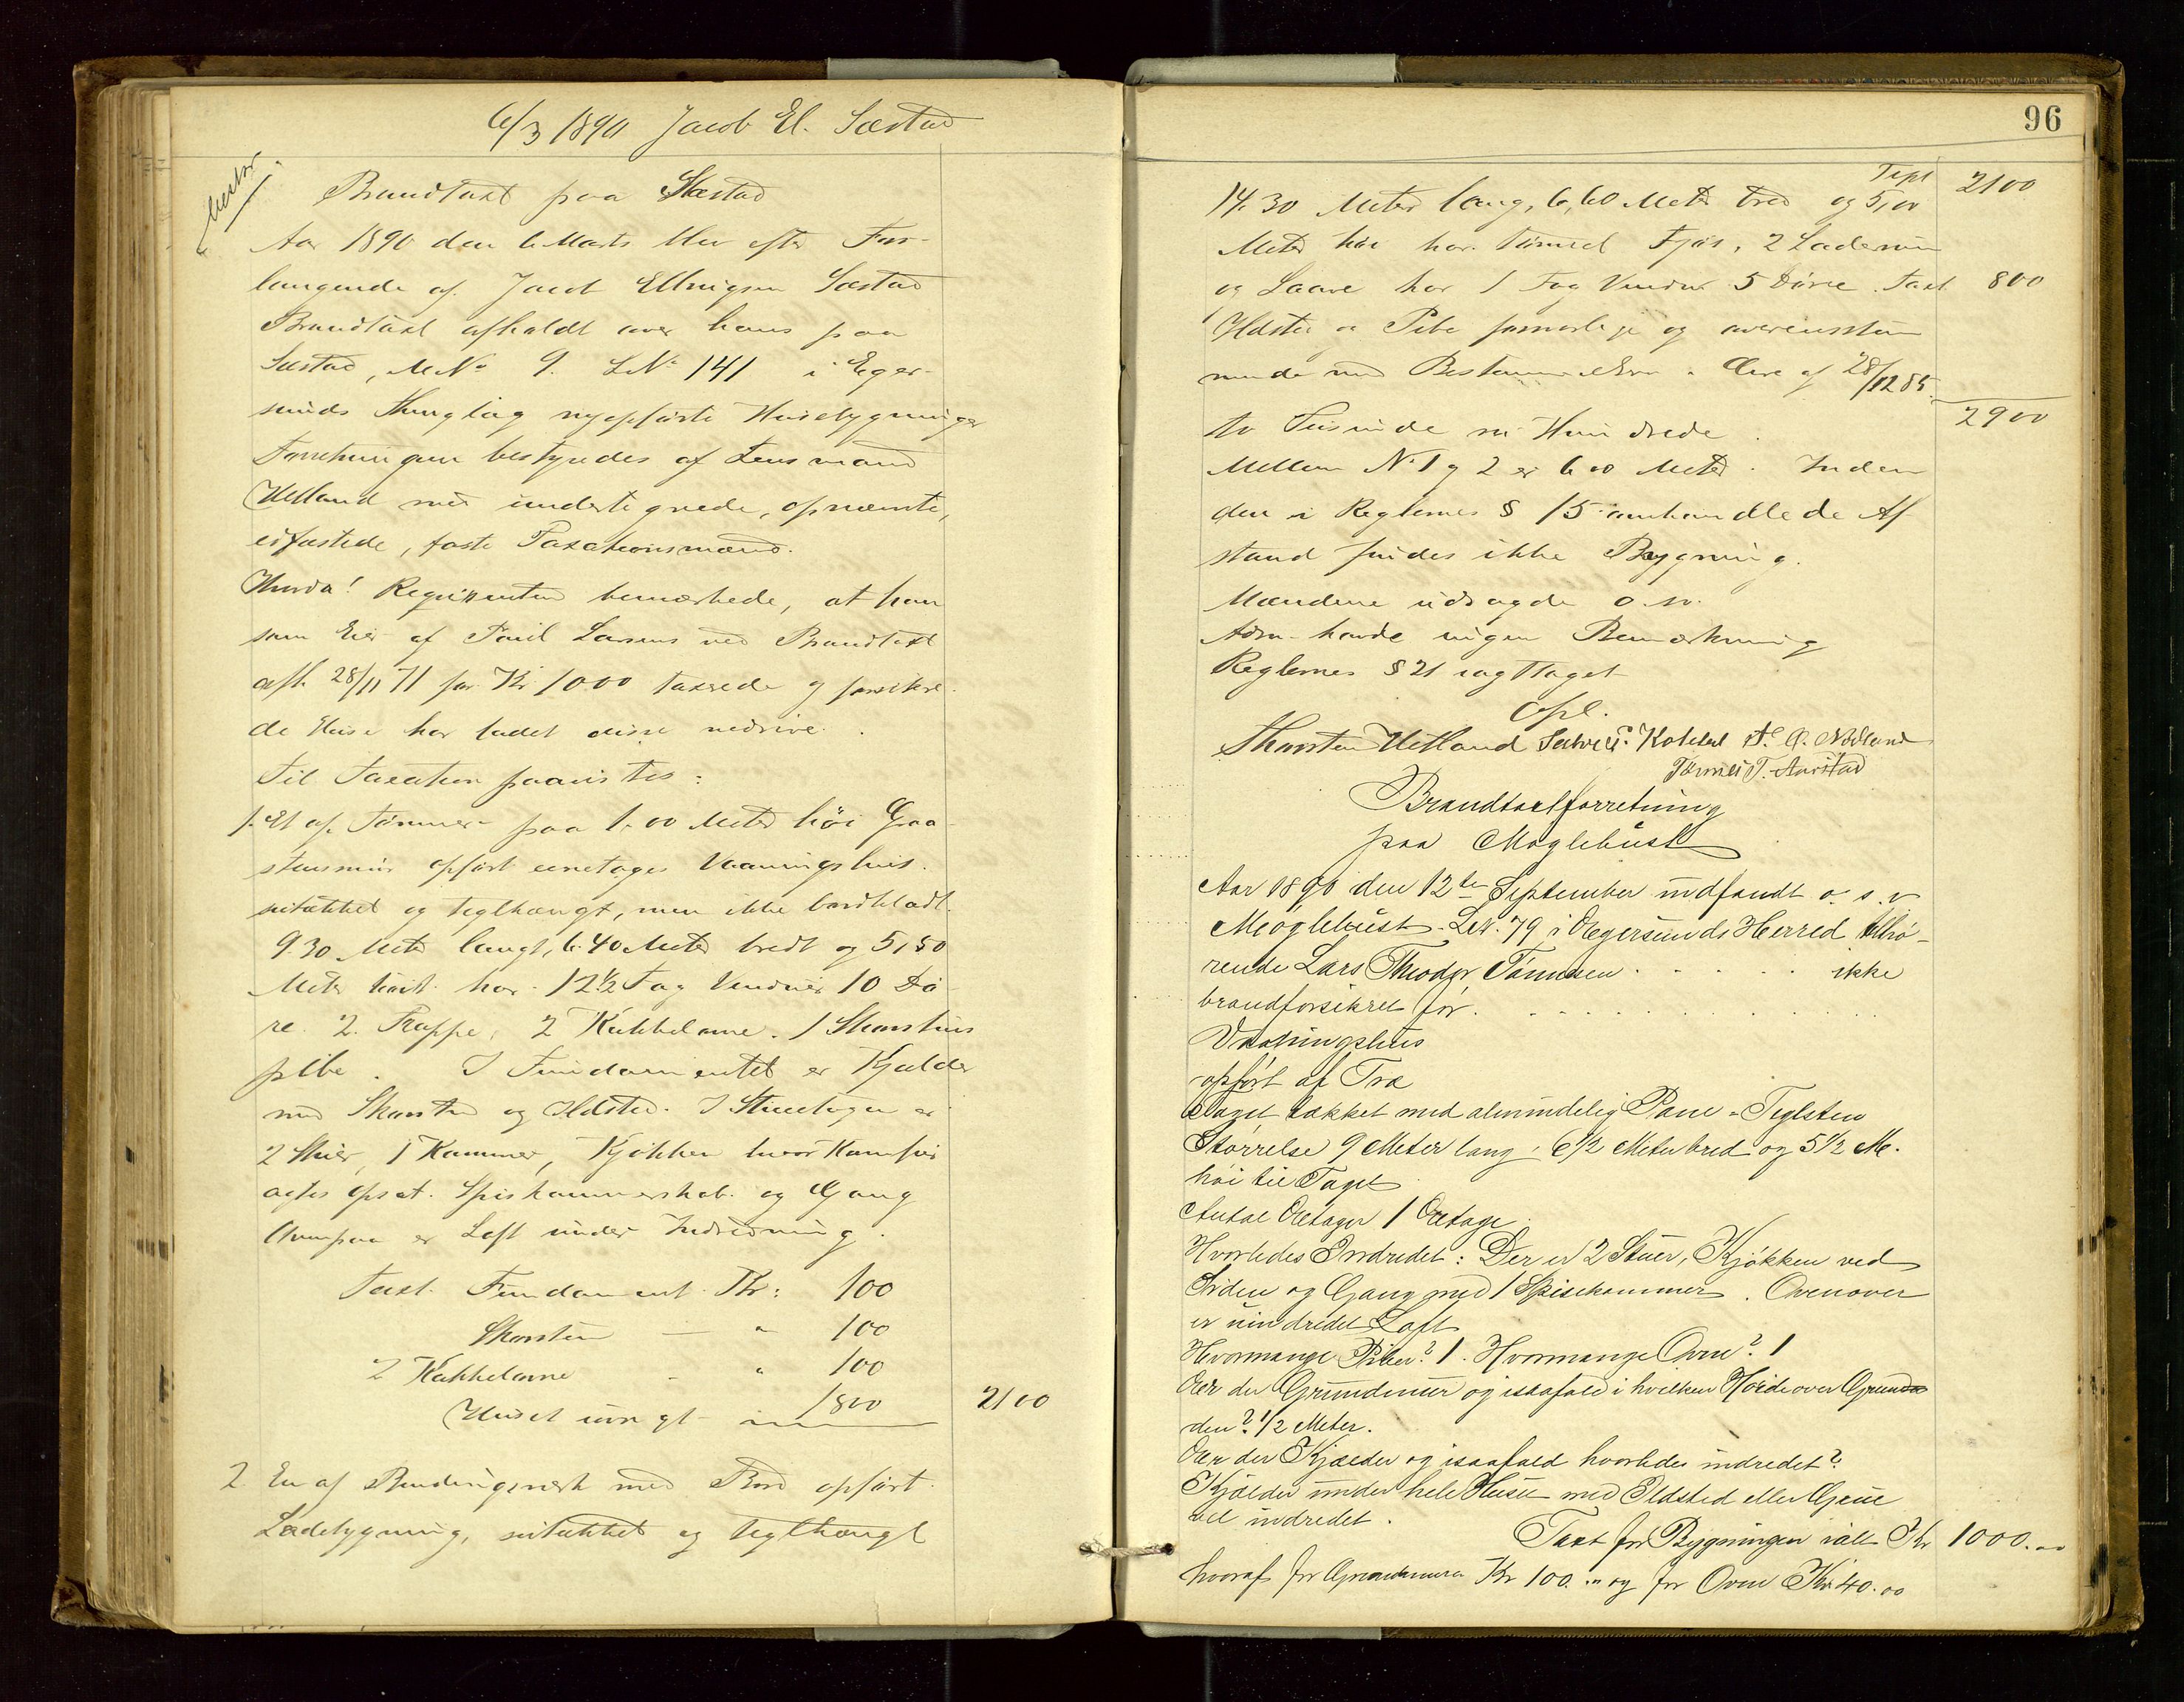 6/3 1890 Jacob El. Sæstad
Brandtaxt paa Sæstad
Aar 1890 den 6 Marts blev efter For-
langende af Jacob Sæstad
Brandtaxt afholdt over hans paa
Sæstad, MNo 9. LNo 141 i Eger-
sunds Thinglag nyopførte Husebygninger
Forretningen bestyredes af Lensmand
Hetland med undertegnede, opnævnte,
edfæstede, faste Taxationsmænd.
Hvorda! Reqvirenten bemærkede, at han
som Eier af Poul Larsens ved Brandtaxt
afh. 28/11 71 for Kr 1000 taxerede og forsikre-
de Huse har ladet disse nedrive.
Til Taxation paavistes:
1. Et af Tømmer paa 1.00 Meter høi Graa-
stensmur opført eenetages Vaaningshus.
sutækket og teglhængt, men ikke bordklædt.
9.30 Meter langt, 6.40 Meter bredt og 5,50
Meter høit har 12½ Fag Vinduer 10 Dø-
re 2 Trappe, 2 Kakkelovne. 1 Skorstens
pibe. I Fundamentet er Kjælder
med Skorsten og Ildsted. I Stueetagen er
2 Stuer, 1 Kammer, Kjøkken hvor Komfur
agtes opsat. Spiskammerskab og Gang
Ovenpaa er Loft under Indredning.
Taxt. Fundament Kr: 100
Skorsten — " 100
2 Kakkelovne - " 100
Huset iøvrigt 1800 2100
2 En af Bindingsverk med Bord opført
Ladebygning, sutækket og teglhængt
96
Tspt 2100
14.30 Meter lang, 6,60 Meter bred og 5,00
Meter høi har tømret Fjøs, 2 Laderum
og Laave har 1 Fag Vindu 5 Døre. Taxt 800
Ildsted og Pibe forsvarlige og overensstem
mende med Bestemmelserne i Cirk af 28/12 85.
2900
to Tusinde ni Hundrede.
Mellem No 1 og 2 er 6 00 Meter. Inden
den i Reglernes § 15 omhandlede Af-
stand findes ikke Bygning.
Mændene udsagde o. sv.
Adm. havde ingen Bemærkning
Reglernes § 21 iagttaget
Opl.
Thorsten Hetland Kolldal A. Nodland
Tønnes T. Aarstad
Brandtaxtforretning
paa Møglebust
Aar 1890 den 12te September indfandt o. s. v
Møglebust LN. 79 i Øegersunds Herred tilhø-
rende Lars Theodor Tønnesen . . . . . ikke
brandforsikret før. . . . . . . . . . .
Vaaningshus
opført af Træ
Taget tækket med almindelig Pane-Teglsten
Størrelse 9 Meter lang, 6 1/2 Meter bred og 5 1/2 M.
høi til Taget
Antal Etager 1 Etage.
Hvorledes Indredet: Der er 2 Stuer, Kjøkken ved
Siden og Gang med 1 Spisekammer. Ovenover
er uindredet Loft
Hvormange Piber? 1. Hvormange Ovne? 1
Er der Grundmur og isaafald i hvilken Høide over Grun
den? 1/2 Meter.
Er der Kjælder og isaafald hvorledes indredet?
Kjælder under hele Huset med Ildsted eller Grue
vel indredet.
Taxt for Bygningen ialt Kr 1000.00
hvoraf for Grundmuren Kr 100.00 og for Ovne Kr 40.00